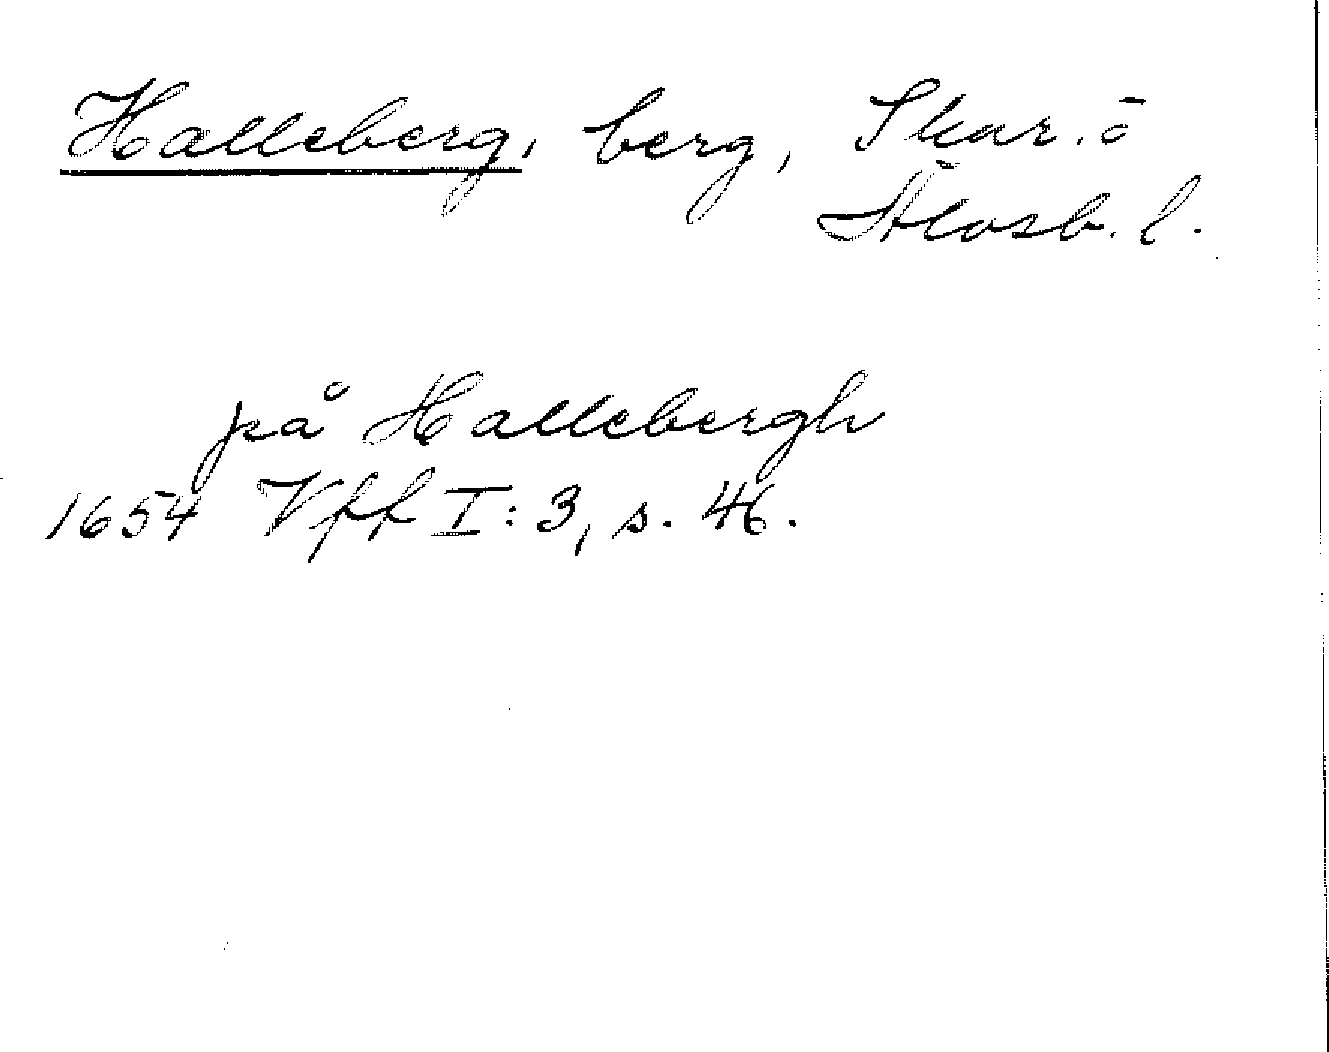 Halleberg, berg, Skar. ö
Älvsb. l.
på Hallebergh
1654 Vff I: 3, s. 46.